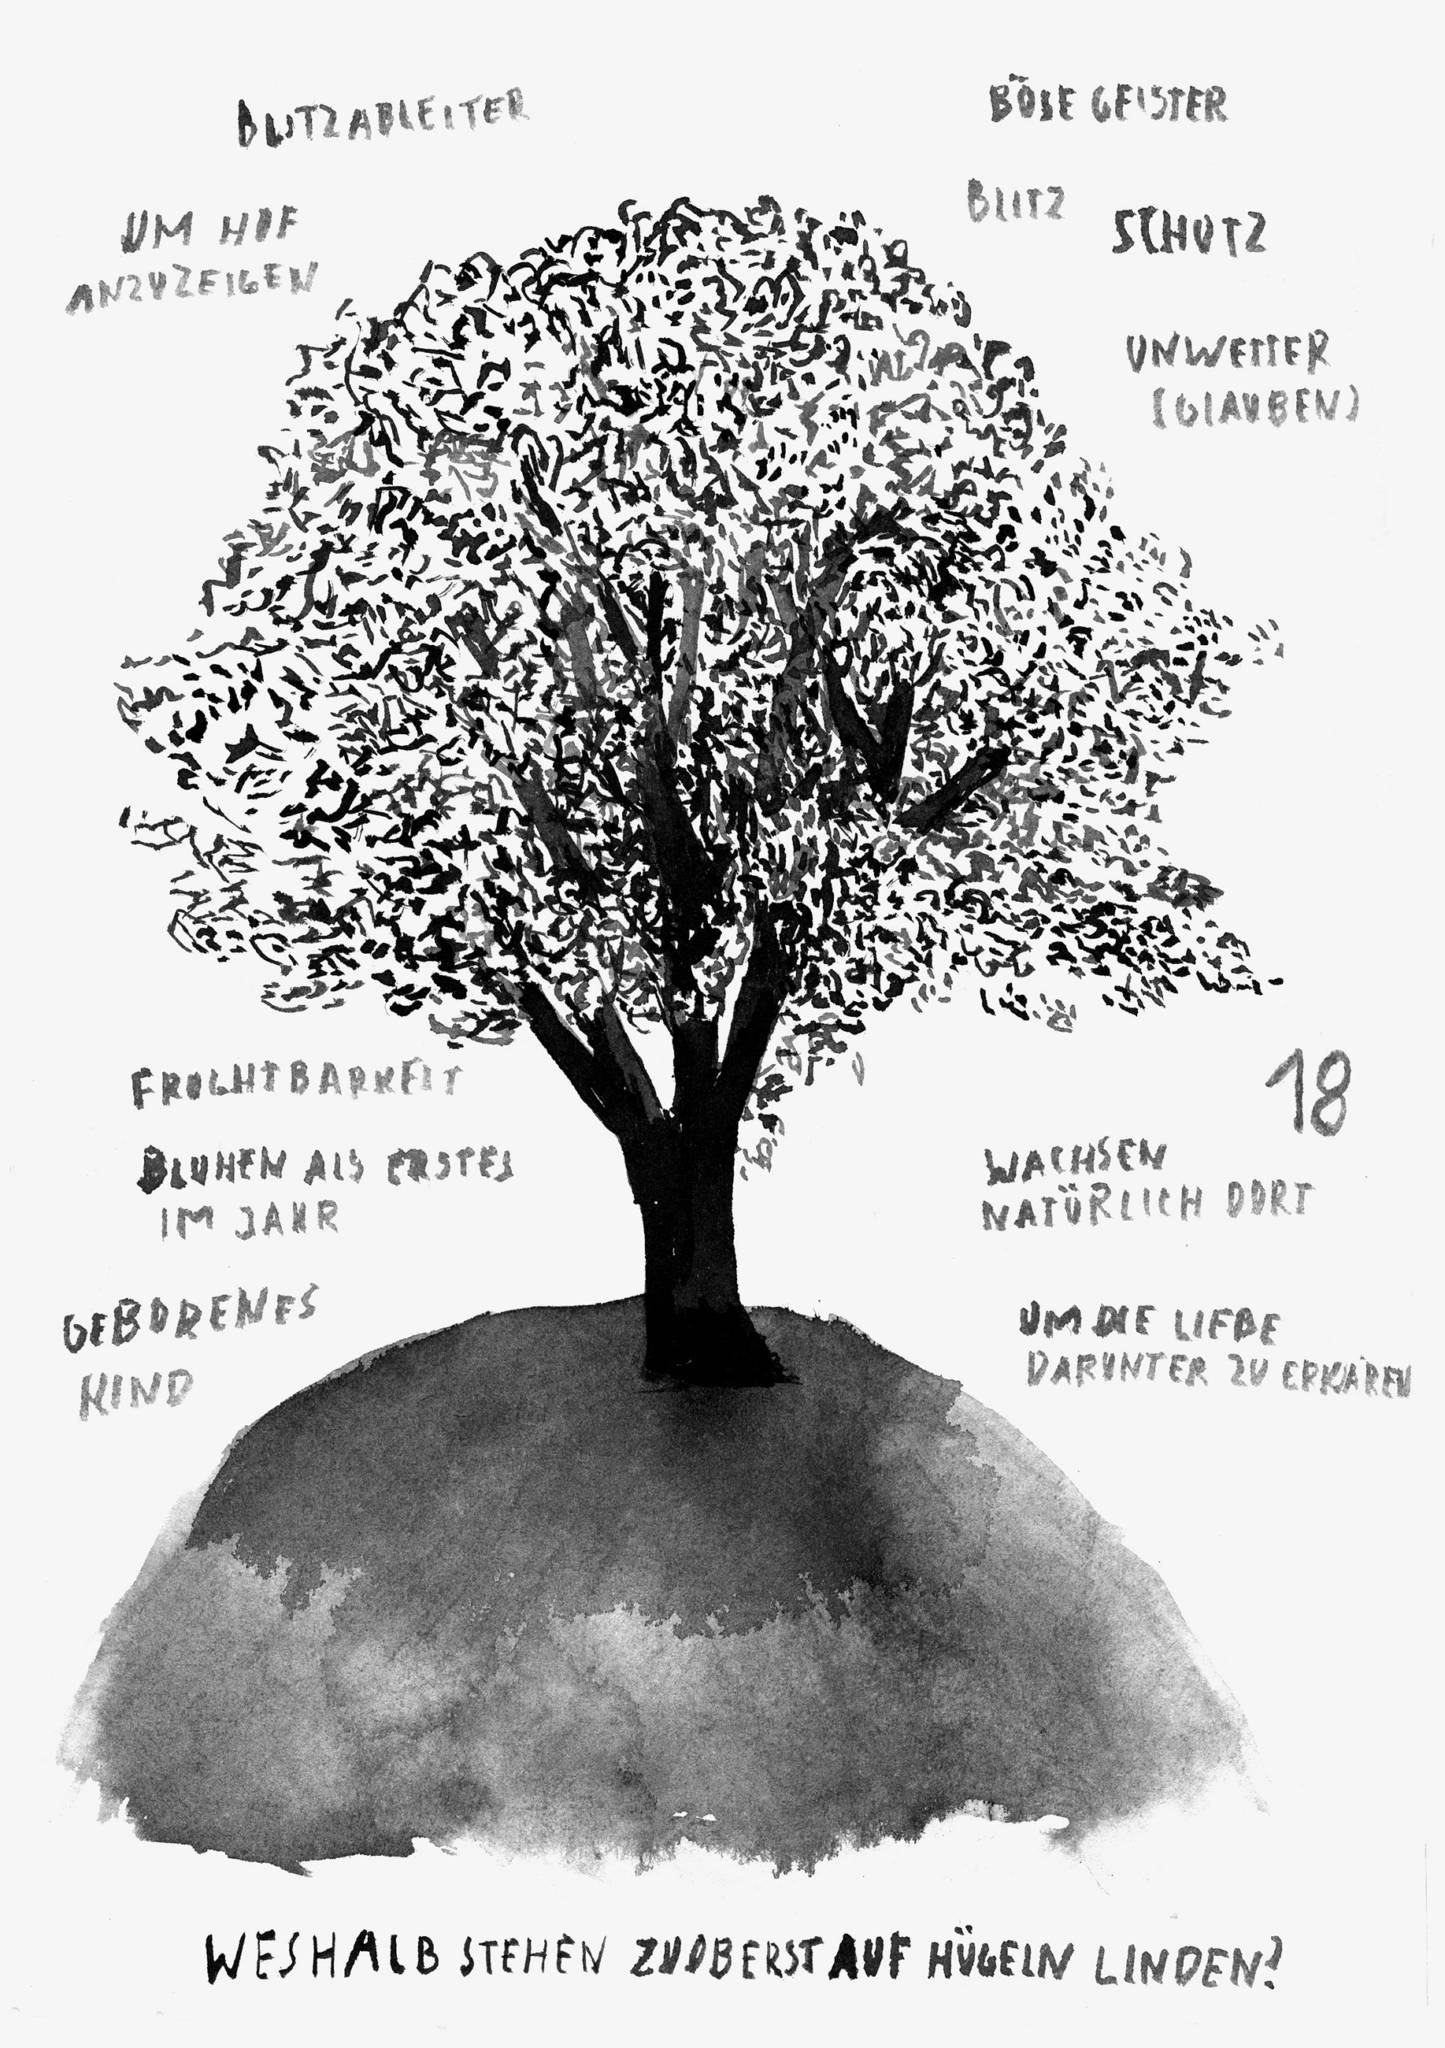 BLITZABLEITER
BÖSE GEISTER
BLITZ
SCHUTZ
UM HOF
ANZUZEIGEN
UNWETTER
(GLAUBEN)
FRUCHTBARKEIT
BLUHEN ALS ERSTES
IM JAHR
GEBORENES
KIND
18
WACHSEN
NATÜRLICH DORT
UM DIE LIEBE
DARUNTER ZU ERKLÄREN
WESHALB STEHEN ZUOBERST AUF HÜGELN LINDEN?